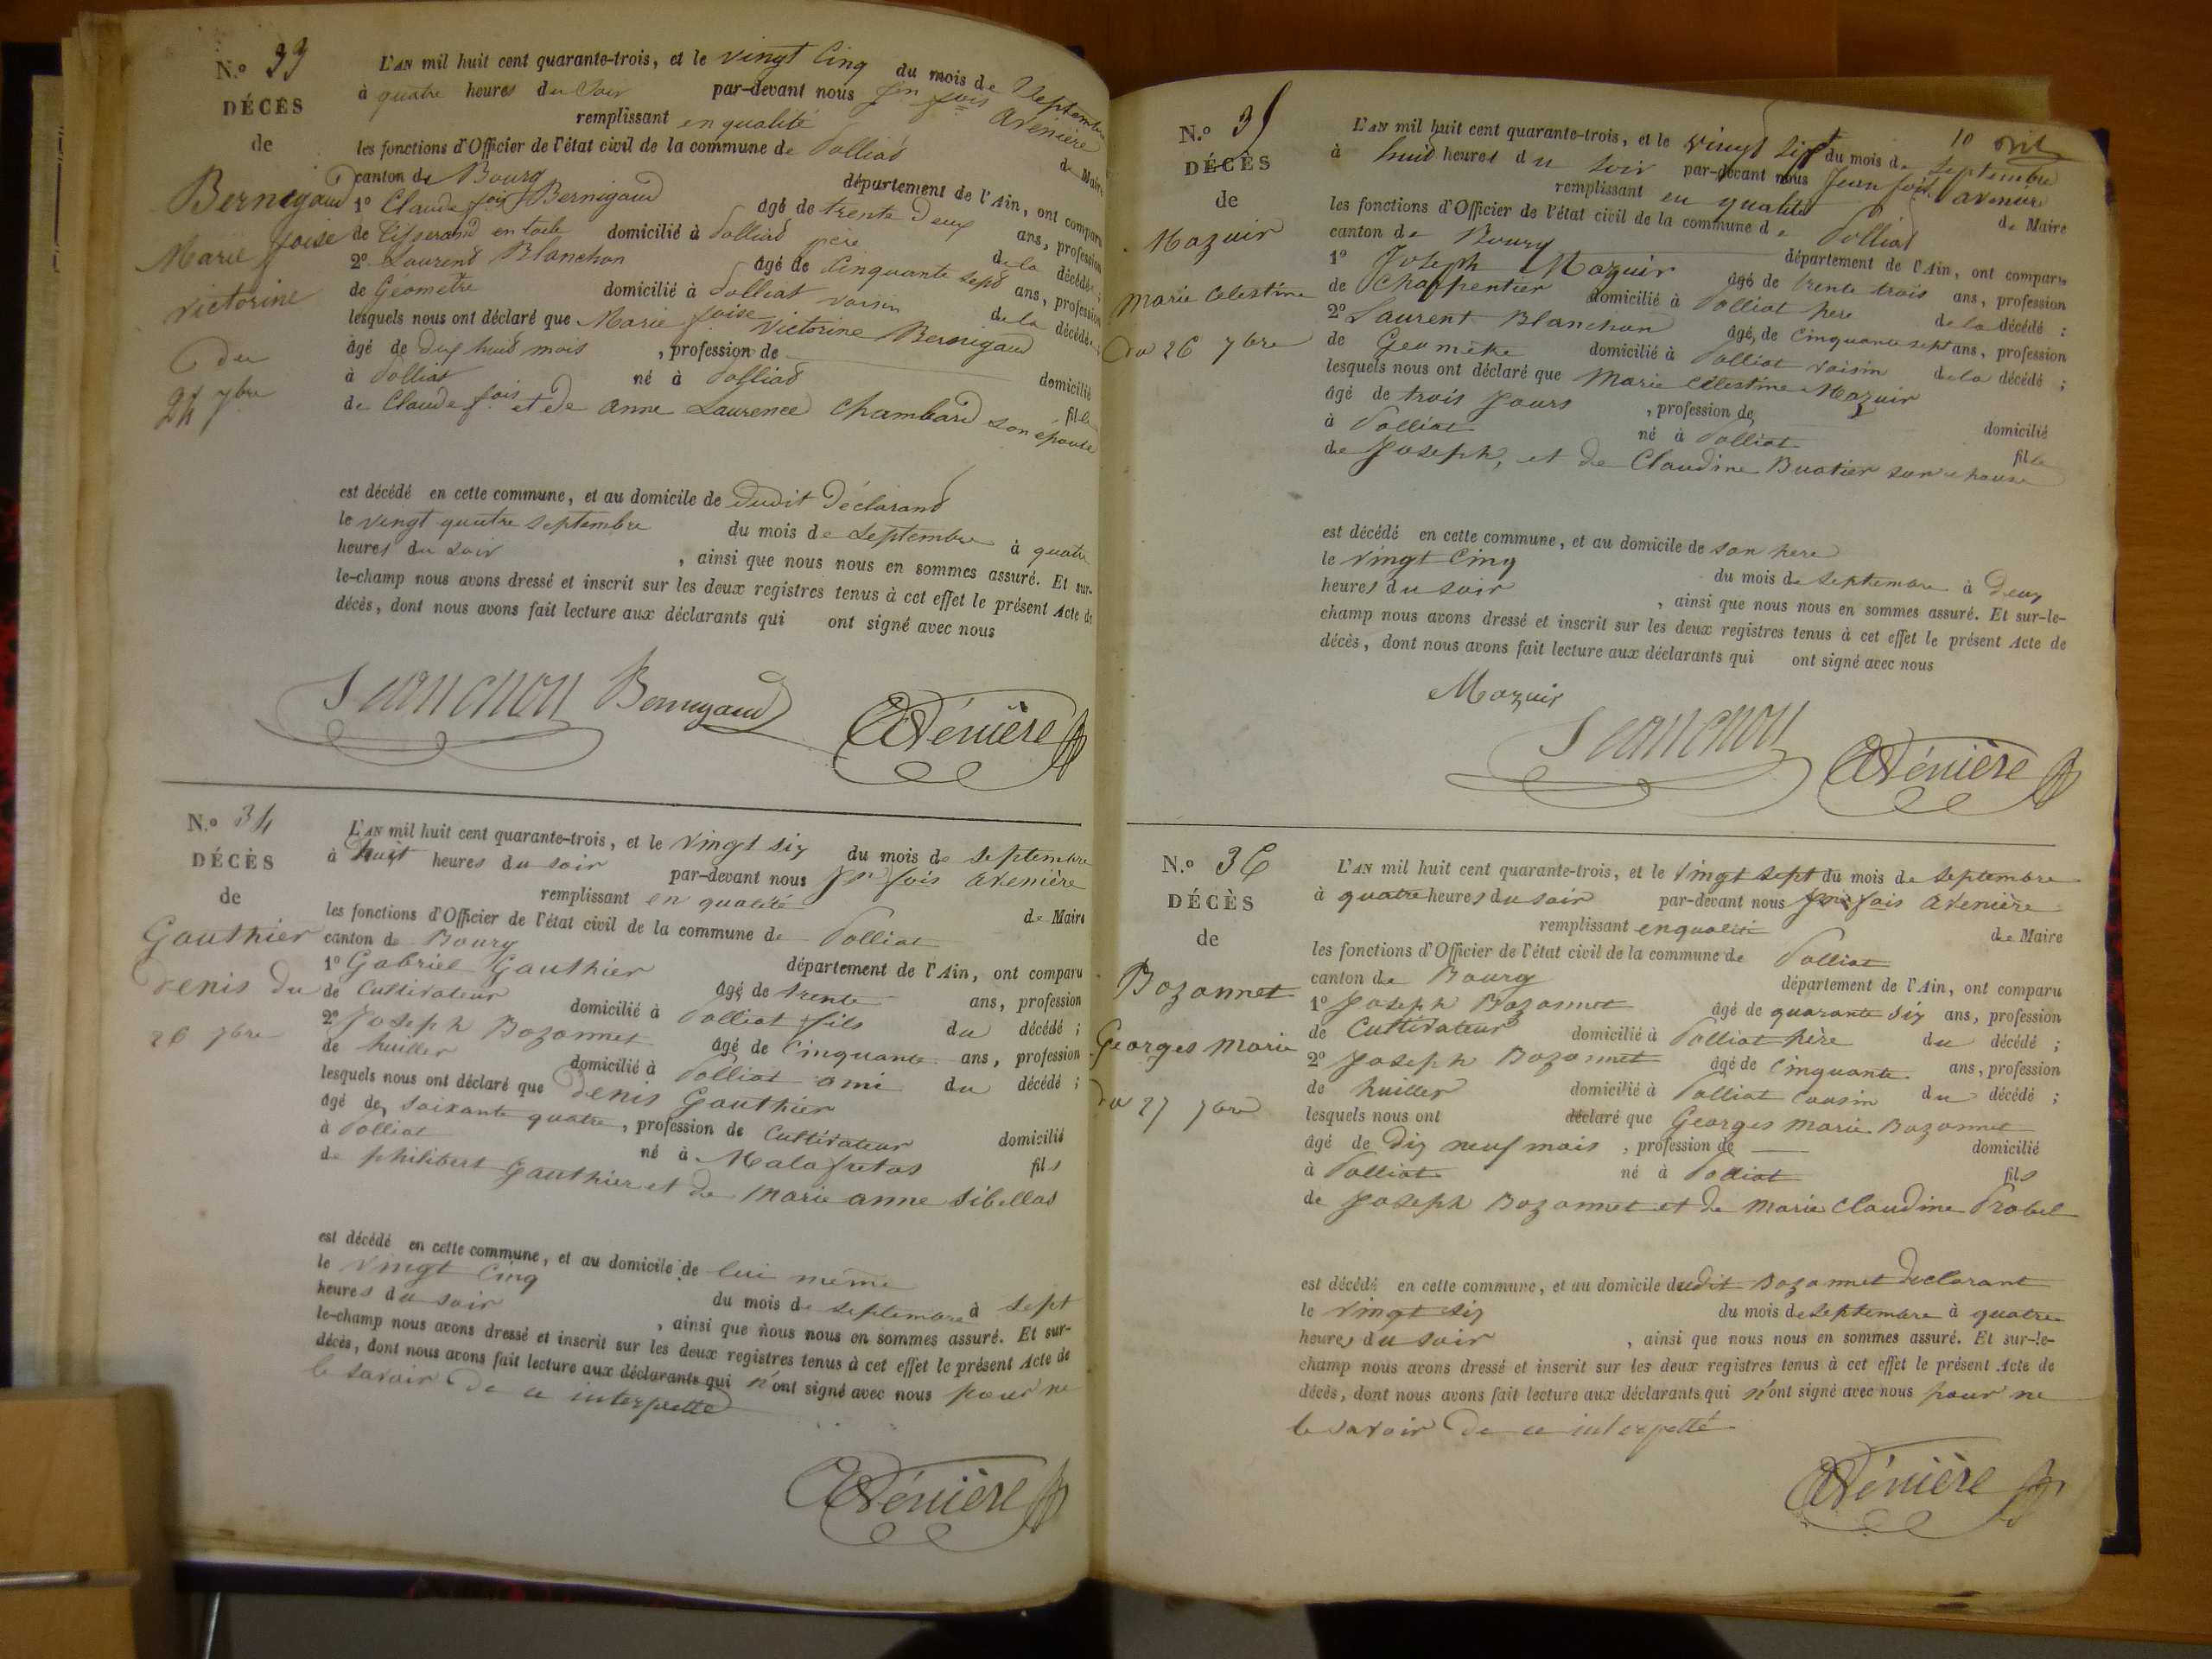 N.o 33
DÉCÈS
de
Bernigaud
Marie foise
victorine
du
24 7bre
L'AN mil huit cent quarante-trois, et le vingt Cinq du mois de Septembre
à quatre heures du Soir par-devant nous jn fois avenière
remplissant en qualité de Maire
les fonctions d'Officier de l'état civil de la commune de Polliat
canton de Bourg département de l'Ain, ont comparu
1o Claude fois Bernigaud âgé de trente Deux ans, profession
de tisserand en toile domicilié à Polliat père de la décédée ;
2o Laurend Blanchon âgé de Cinquante sept ans, profession
de Géometre domicilié à Polliat voisin de la décédée ;
lesquels nous ont déclaré que Marie foise Victorine Bernigaud
âgé de dix huit mois , profession de domicilié
à Polliat né à Polliat fille
de Claude fois et de anne Laurence Chambard son épouse
est décédé en cette commune, et au domicile de Dudit Déclarand
le vingt quatre septembre du mois de septembre à quatre
heures du soir , ainsi que nous nous en sommes assuré. Et sur-
le-champ nous avons dressé et inscrit sur les deux registres tenus à cet effet le présent Acte de
décès, dont nous avons fait lecture aux déclarants qui ont signé avec nous
Blanchon Bernigaud Avénière
N.o 34
DÉCÈS
de
Gauthier
Denis du
26 7bre
L'AN mil huit cent quarante-trois, et le vingt six du mois de septembre
à huit heures du soir par-devant nous jn fois avenière
remplissant en qualité de Maire
les fonctions d'Officier de l'état civil de la commune de Polliat
canton de Bourg département de l'Ain, ont comparu
1o Gabriel Gauthier âgé de trente ans, profession
de Cultivateur domicilié à Polliat fils du décédé ;
2o Joseph Bozonnet âgé de Cinquante ans, profession
de huiller domicilié à Polliat ami du décédé ;
lesquels nous ont déclaré que Denis Gauthier
âgé de soixante quatre , profession de Cultivateur domicilié
à Polliat né à Malafretas fils
de philibert Gauthier et de Marie anne Sibellas
est décédé en cette commune, et au domicile de lui même
le vingt Cinq du mois de septembre à sept
heures du soir , ainsi que nous nous en sommes assuré. Et sur-
le-champ nous avons dressé et inscrit sur les deux registres tenus à cet effet le présent Acte de
décès, dont nous avons fait lecture aux déclarants qui n'ont signé avec nous pour ne
le savoir De ce interpellé
Avénière
10
N.o 35
DÉCÈS
de
Mazuir
Marie Celestine
Du 26 7bre
L'AN mil huit cent quarante-trois, et le vingt six du mois de septembre
à huit heures du soir par-devant nous Jean fois avenière
remplissant en qualité de Maire
les fonctions d'Officier de l'état civil de la commune de Polliat
canton de Bourg département de l'Ain, ont comparu
1o Joseph Mazuir âgé de trente trois ans, profession
de Charpentier domicilié à Polliat pere de la décédé ;
2o Laurent Blanchon âgé de Cinquante sept ans, profession
de Geometre domicilié à Polliat voisin de la décédé ;
lesquels nous ont déclaré que Marie Celestine Mazuir
âgé de trois jours , profession de domicilié
à Polliat né à Polliat fille
de Joseph, et de Claudine Buatier son epouse
est décédé en cette commune, et au domicile de son pere
le vingt Cinq du mois de septembre à Deux
heures du soir , ainsi que nous nous en sommes assuré. Et sur-le-
champ nous avons dressé et inscrit sur les deux registres tenus à cet effet le présent Acte de
décès, dont nous avons fait lecture aux déclarants qui ont signé avec nous
Mazuir
Blanchon Avénière
N.o 36
DÉCÈS
de
Bozonnet
Georges Marie
du 27 7bre
L'AN mil huit cent quarante-trois, et le vingt sept du mois de septembre
à quatre heures du soir par-devant nous jean fois avenière
remplissant en qualité de Maire
les fonctions d'Officier de l'état civil de la commune de Polliat
canton de Bourg département de l'Ain, ont comparu
1o Joseph Bozonnet âgé de quarante six ans, profession
de Cultivateur domicilié à Polliat père du décédé ;
2o Joseph Bozonnet âgé de Cinquante ans, profession
de huiller domicilié à Polliat Cousin du décédé ;
lesquels nous ont déclaré que Georges Marie Bozonnet
âgé de Dix neuf mois , profession de domicilié
à Polliat né à Polliat fils
de Joseph Bozonnet et de Marie Claudine Probel
est décédé en cette commune, et au domicile dudit Bozonnet Declarant
le vingt six du mois de septembre à quatre
heures du soir , ainsi que nous nous en sommes assuré. Et sur-le-
champ nous avons dressé et inscrit sur les deux registres tenus à cet effet le présent Acte de
décès, dont nous avons fait lecture aux déclarants qui n'ont signé avec nous pour ne
le savoir De ce interpellé
Avénière